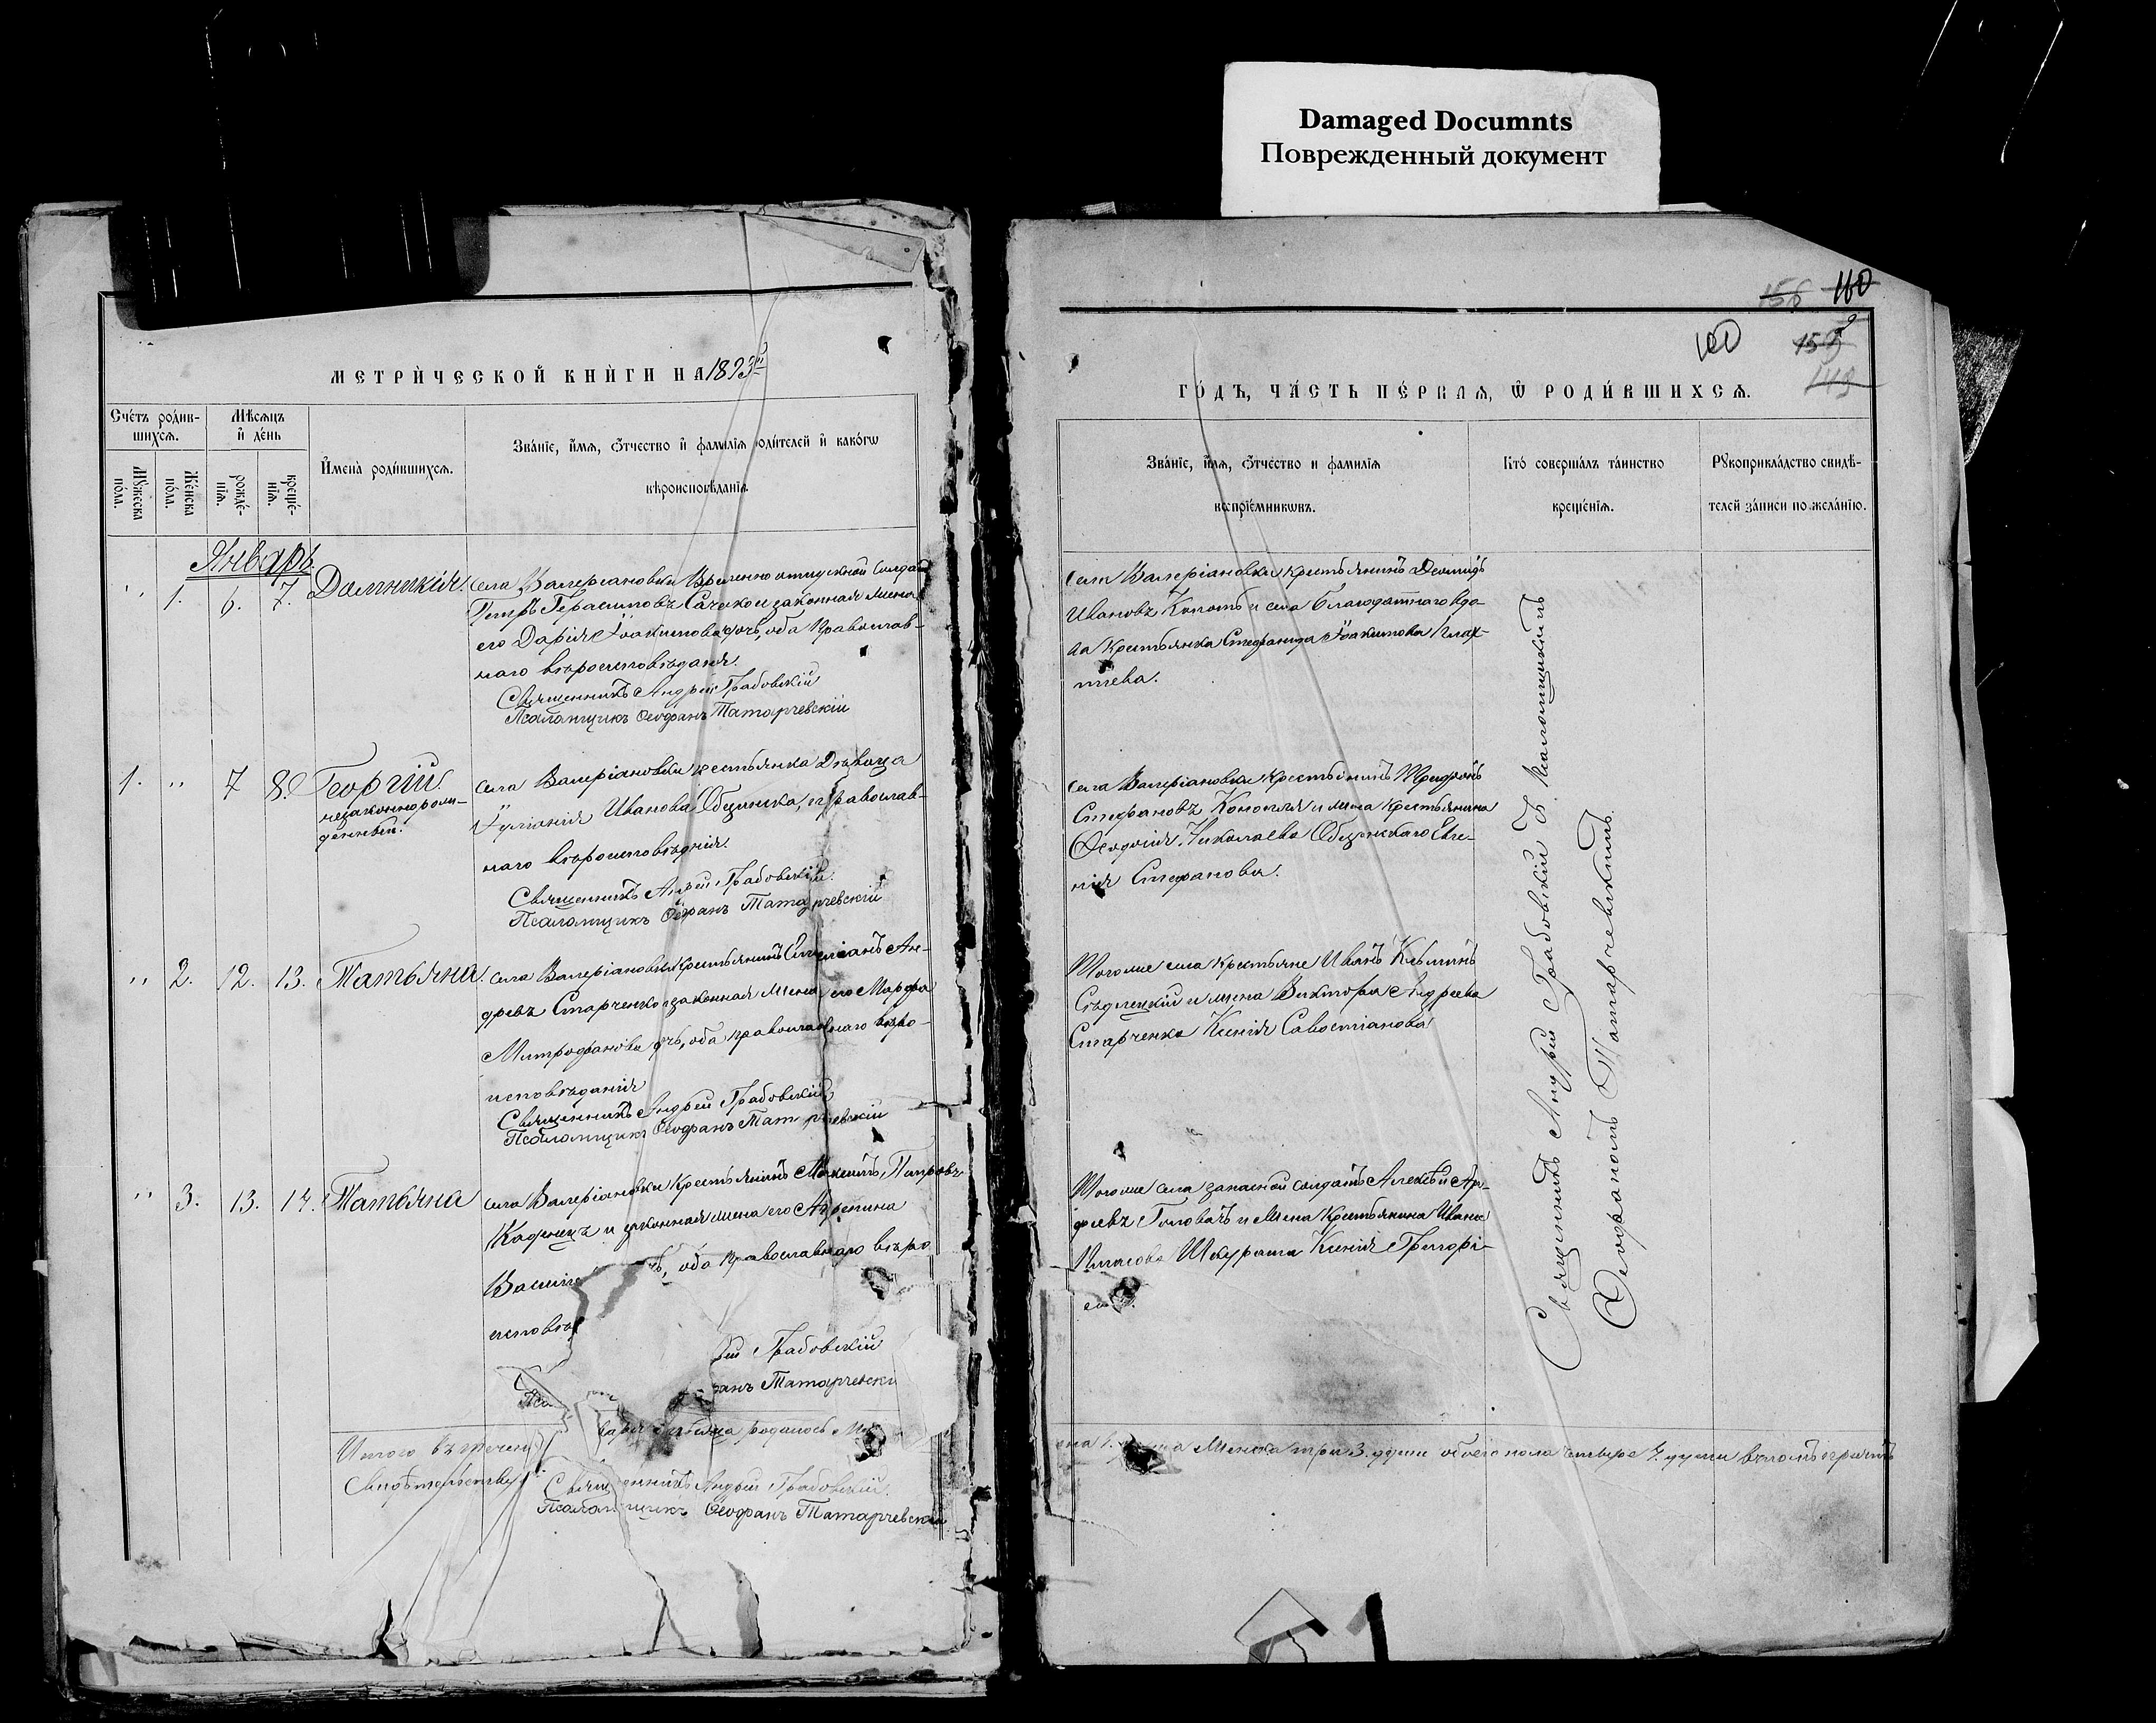 Damaged Documnts
Поврежденный документ
158 160
МЕТРИ́ЧЕСКОЙ КНИ́ГИ НА 1893й
Сче́тъ роди́в-
шихсѧ.
Мѣсѧцъ
и҆ де́нь
Му́жеска
по́ла.
Же́нска
по́ла.
рожде́-
нїѧ.
креще́-
нїѧ.
И҆мена̀ роди́вшихсѧ.
Зва́нїе, и҆́мѧ, ѻ҆́тчество и҆ фами́лїѧ роди́телей и҆ како́гѡ
вѣроисповѣ́данїѧ.
Январь.
,, 1. 6. 7. Домникія.
села Валеріановки Временно отпускной Солдатъ
Петръ Герасимовъ Сачако и законная жена
его Дарія Іоакимова дочь, оба Православ-
наго вѣроисповѣданія.
Священникъ Андрей Грабовскій
Псаломщикъ Ѳеофанъ Татарчевскій
1. ,, 7 8. Георгій.
незаконнорож-
денный.
села Валеріановки крестьянка Дѣвица
Іуліанія Иванова Общинска, православ-
наго вѣроисповѣданія.
Священникъ Андрей Грабовскій.
Псаломщикъ Ѳеофанъ Татарчевскій
,, 2. 12. 13. Татьяна.
села Валеріановки крестьянинъ Емеліанъ Ан-
дреевъ Старченко и законная жена его Марфа
Митрофанова дчь, оба православнаго вѣро-
исповѣданія
Священникъ Андрей Грабовскій
Псаломщикъ Ѳеофанъ Татарчевскій
,, 3. 13. 14. Татьяна
села Валеріановки Крестьянинъ Максимъ Петровъ
Каденецъ и законная жена его Агрепина
Васил чь, оба Православнаго вѣро
исповѣ
ей Грабовскій
Пса анъ Татарчевскі
Итого въ течен варя мѣсяца родилось
Свидѣтельствуе
Священникъ Андрей Грабовскій.
Псаломщикъ Ѳеофанъ Татарчевскій
160 159
149
ГО́ДЪ, ЧА́СТЬ ПЕ́РВАѦ, Ѡ҆ РОДИ́ВШИХСѦ.
Зва́нїе, и҆́мѧ, ѻ҆́тчество и фами́лїѧ
воспрїе́мникѡвъ.
Кто̀ соверша́лъ та́инство
креще́нїѧ.
Рꙋкоприкла́дство свидѣ́-
телей за́писи по жела́нїю.
села Валеріановки крестьянинъ Діомидъ
Ивановъ Копоть и села Благодатнаго вдо-
ва Крестьянка Стефанида Іоакимова Плах-
тіева.
села Валеріановки крестьянинъ Трифонъ
Стефановъ Конопля и жена крестьянина
Ѳеодосія Николаева Общинскаго Евге-
нія Стефанова.
Тогоже села крестьяне Иванъ
Сѣдлецкій и жена Виктора Андреева
Старченка Ксенія Савостіанова
Тогоже села запасной солдатъ Алексѣй Ан-
дреевъ Головачъ и Жена Крестьянина Ивана
Власова Шкурата Ксенія Григорі-
ева.
Священникъ Андрей Грабовскій съ Псаломщикомъ
Ѳеофаномъ Татарчевскимъ.
ска 1. Женска три 3. души обоего пола четыре 4. души въ томъ